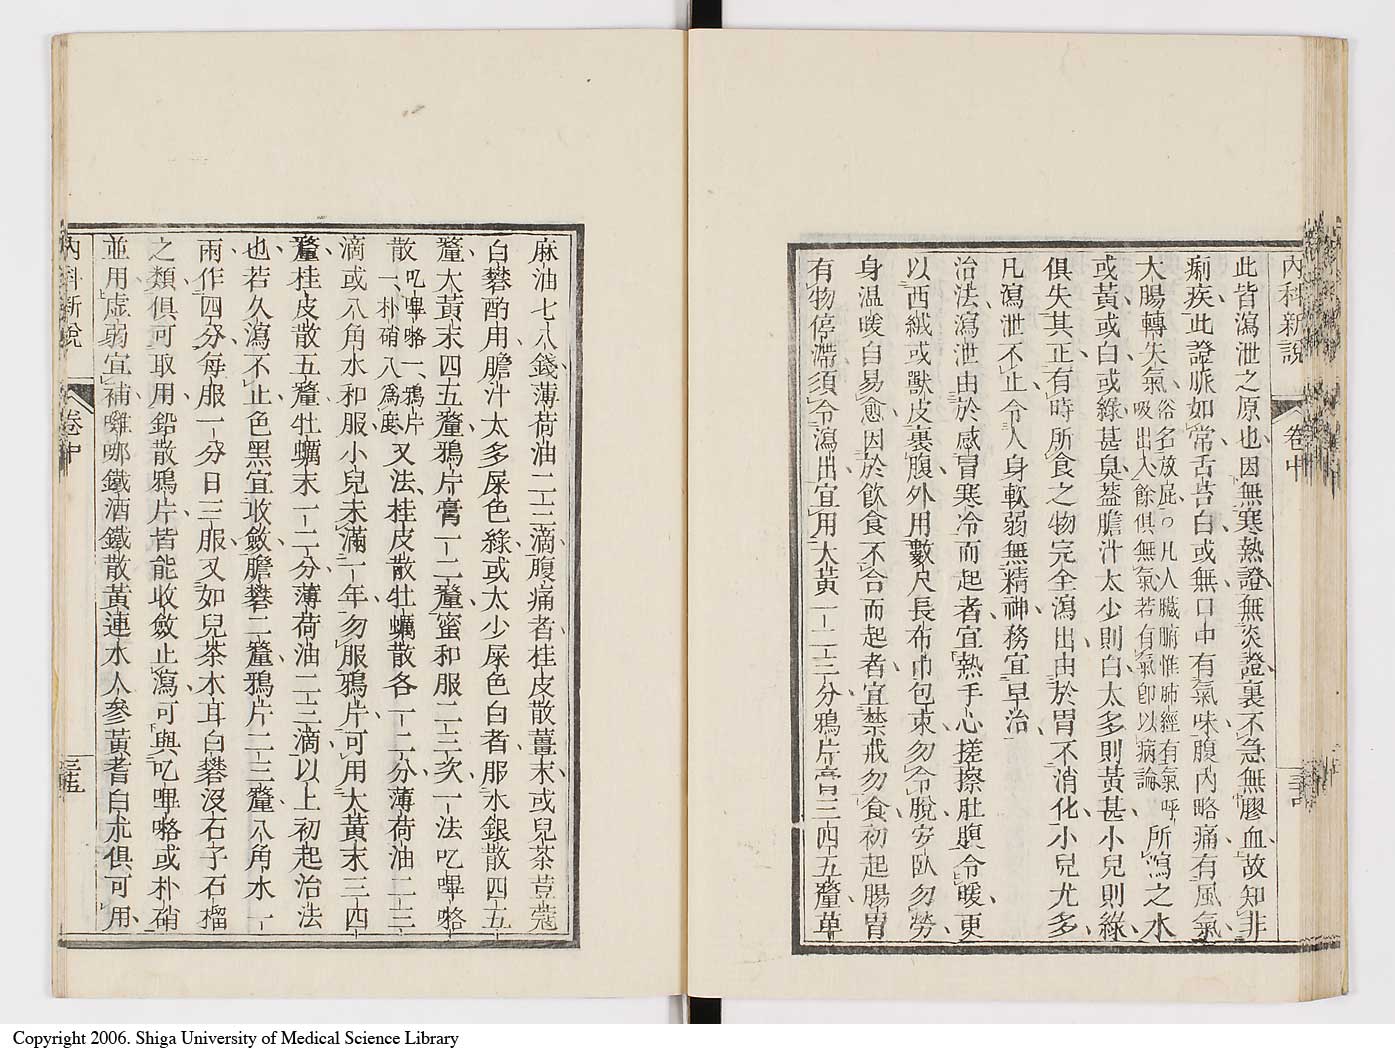 內科新說 卷中
此皆瀉泄之原也因無寒熱證無炎證裏不急無膠血故知非
痢疾此證脈如常舌苔白或無口中有氣味腹內略痛有風氣
大腸轉失氣俗名放屁○凡人臟腑惟肺經有氣呼吸出入餘俱無氣若有氣卽以病論所瀉之水
或黃或白或綠甚臭蓋膽汁太少則白太多則黃甚小兒則綠
俱失其正有時所食之物完全瀉出由於胃不消化小兒尤多
凡瀉泄不止令人身軟弱無精神務宜早治
治法瀉泄由於感冒寒冷而起者宜熱手心搓擦肚腹令暖更
以西絨或獸皮裹腹外用數尺長布巾包束勿令脫安臥勿勞
身溫暖自易愈因於飲食不合而起者宜禁戒勿食初起腸胃
有物停滯須令瀉出宜用大黃一二三分鴉片膏三四五釐萆
麻油七八錢薄荷油二三滴腹痛者桂皮散薑末或兒茶荳蔻
白礬酌用膽汁太多屎色綠或太少屎色白者服水銀散四五
釐大黃末四五釐鴉片膏一二釐蜜和服二三次一法吃嗶咯
散吃嗶咯一鴉片一朴硝八爲度又法桂皮散牡蠣散各一二分薄荷油二三
滴或八角水和服小兒未滿一年勿服鴉片可用大黃末三四
釐桂皮散五釐牡蠣末一二分薄荷油二三滴以上初起治法
也若久瀉不止色黑宜收斂膽礬二釐鴉片二三釐八角水一
兩作四分每服一分日三服又如兒茶木耳白礬沒石子石榴
之類俱可取用鉛散鴉片皆能收斂止瀉可與吃嗶咯或朴硝
並用虛弱宜補囄哪鐵酒鐵散黃連水人參黃耆白朮俱可用
內科新說 卷中 三五